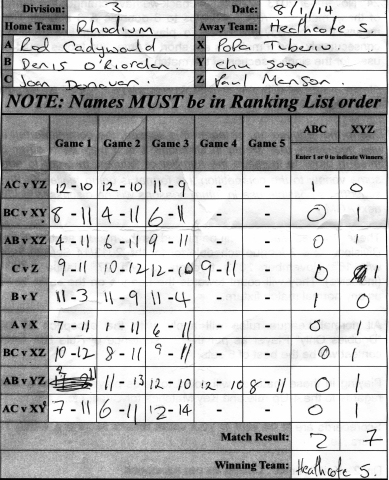 Division: 3 Date: 8/1/14
Home Team: Rhodium Away Team: Heathcote S.
A Rod Cadywould X Popa Tuberiu.
B Denis O'Riordan. Y Chu Soon
C Joan Donovan. Z Paul Manson.
NOTE: Names MUST be in Ranking List order
Game 1 Game 2 Game 3 Game 4 Game 5 ABC XYZ
Enter 1 or 0 to indicate Winners
AC v YZ 12-10 12-10 11-9 - - 1 0
BC v XY 8-11 4-11 6-11 - - 0 1
AB v XZ 4-11 6-11 9-11 - - 0 1
C v Z 9-11 10-12 12-10 9-11 - 0 1
B v Y 11-3 11-9 11-4 - - 1 0
A v X 7-11 1-11 6-11 - - 0 1
BC v XZ 10-12 8-11 9-11 - - 0 1
AB v YZ 11-13 12-10 12-10 8-11 0 1
AC v XY 7-11 6-11 12-14 - - 0 1
Match Result: 2 7
Winning Team: Heathcote S.